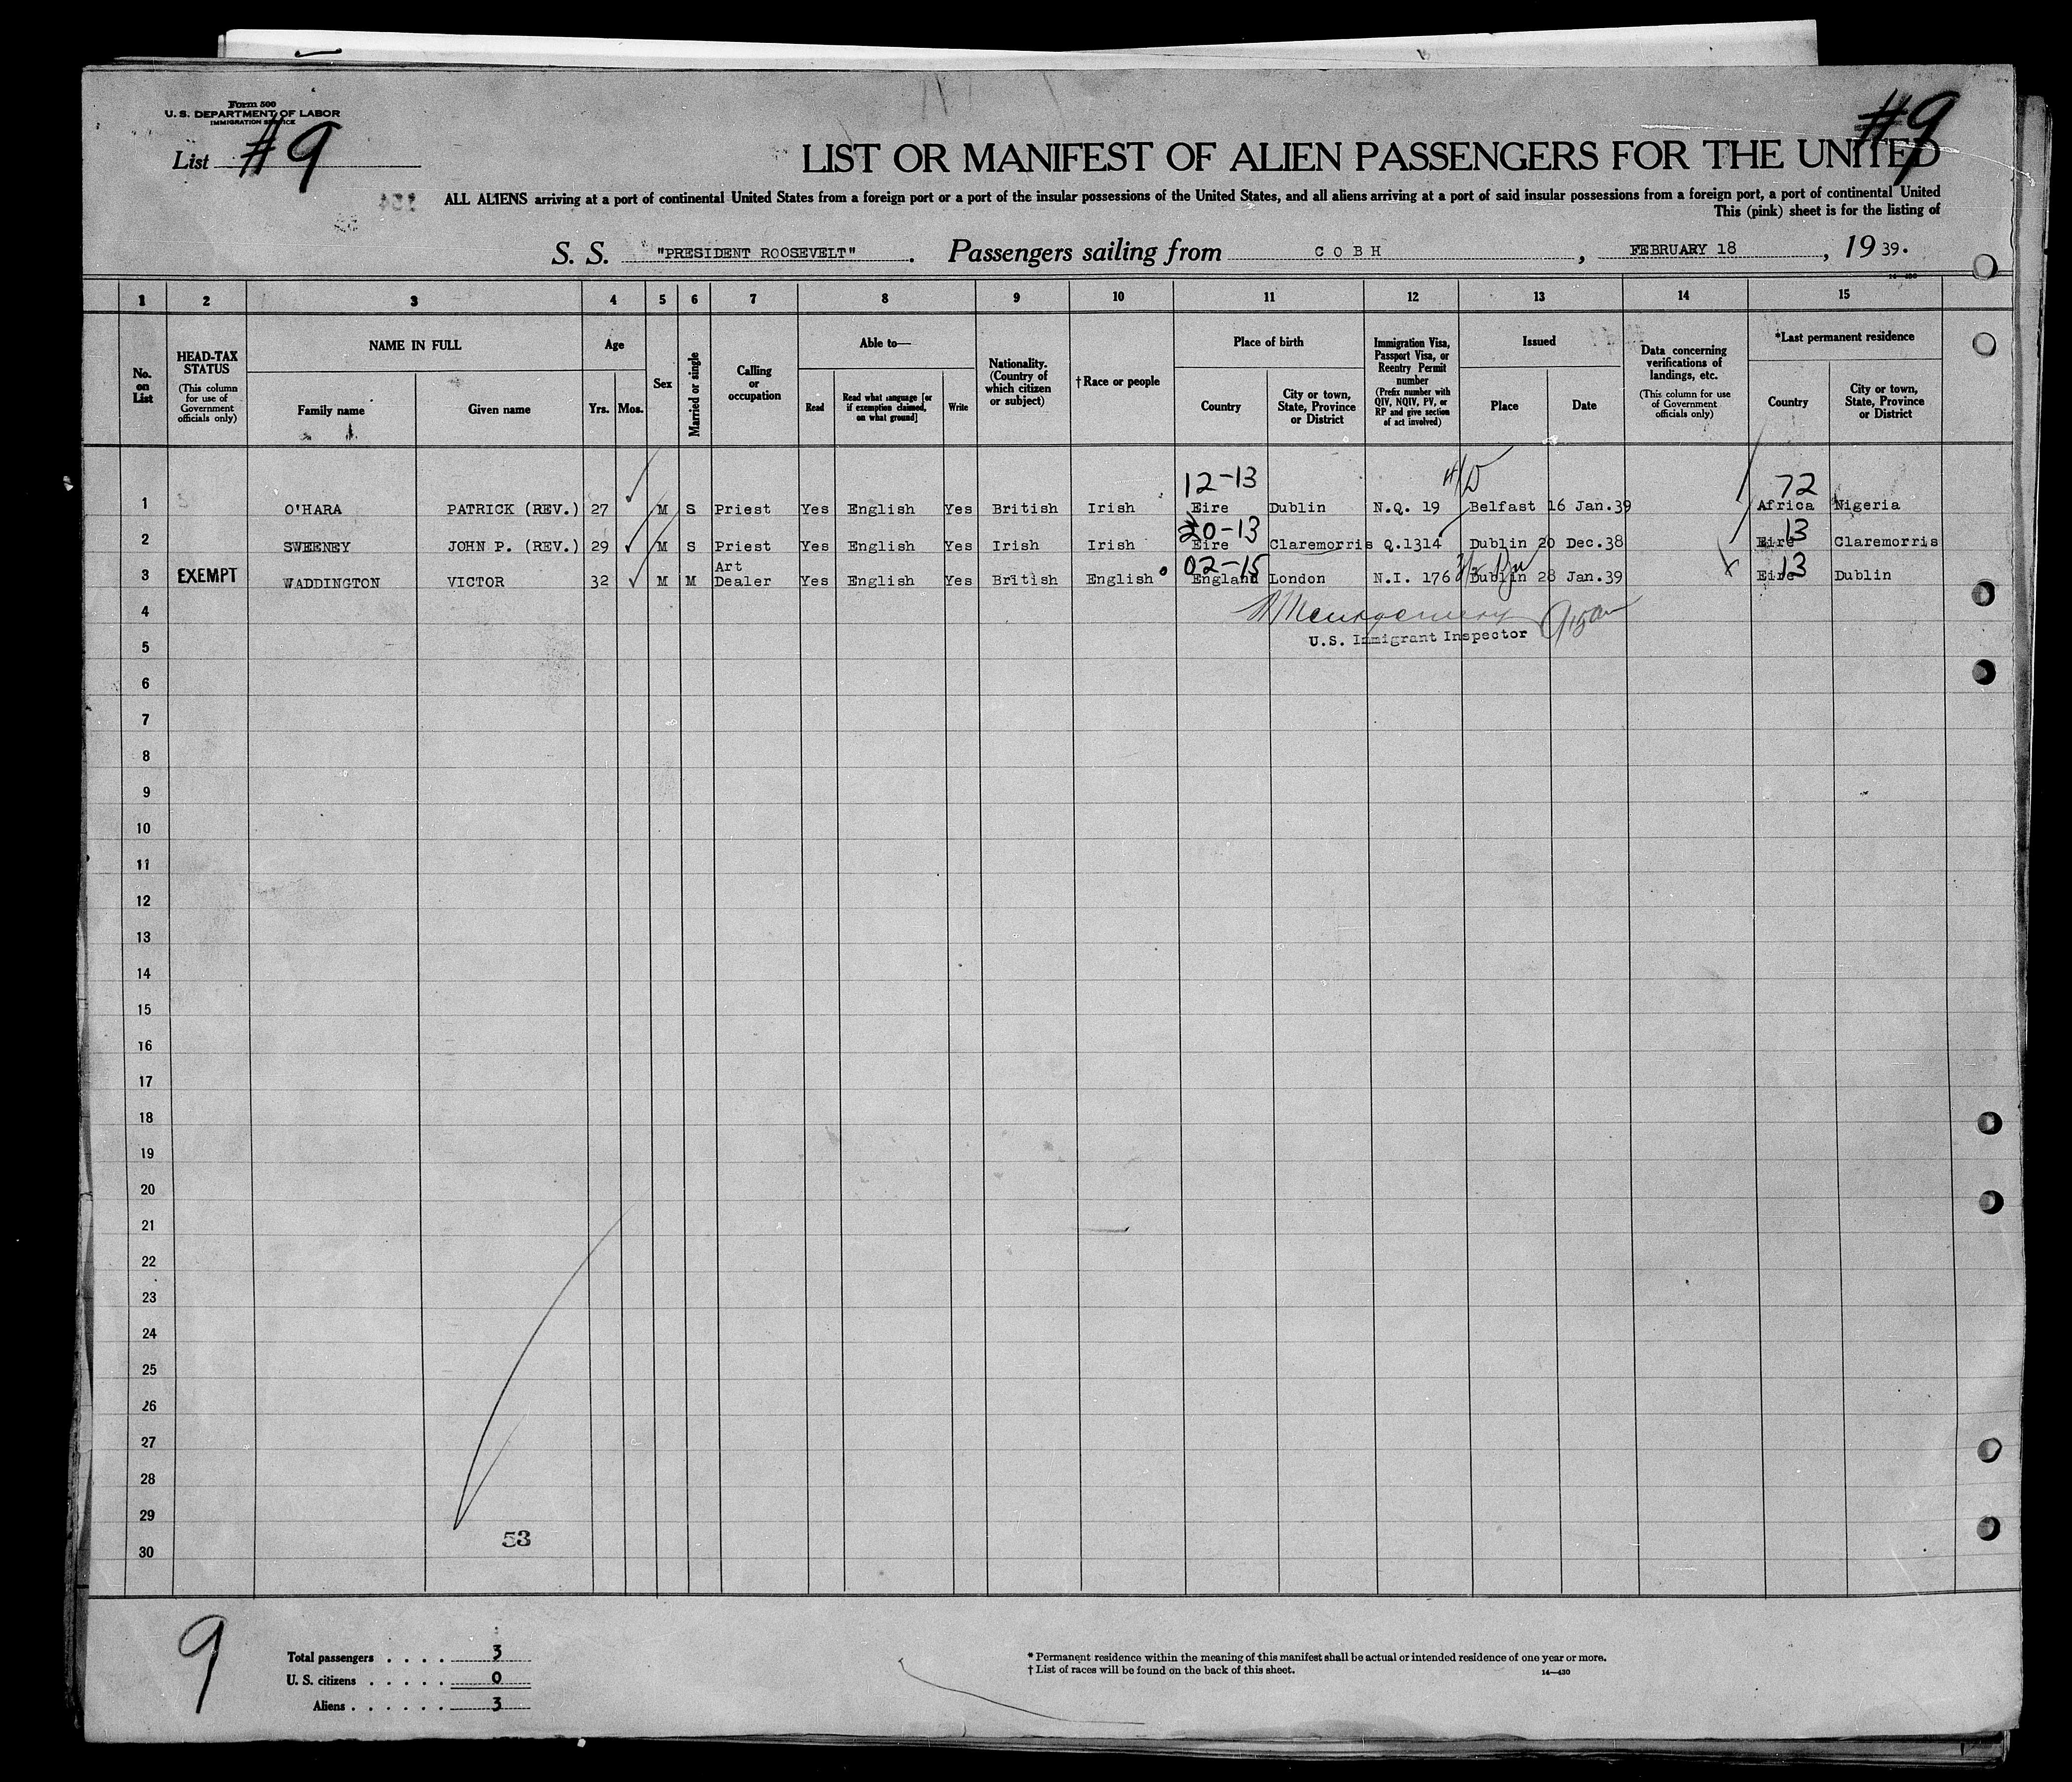 Form 500
U. S. DEPARTMENT OF LABOR
IMMIGRATION SERVICE
List #9
#9
LIST OR MANIFEST OF ALIEN PASSENGERS FOR THE UNITED
ALL ALIENS arriving at a port of continental United States from a foreign port or a port of the insular possessions of the United States, and all aliens arriving at a port of said insular possessions from a foreign port, a port of continental United
This (pink) sheet is for the listing of
S. S. "PRESIDENT ROOSEVELT". Passengers sailing from COBH, FEBRUARY 18, 1939.
1 2 3 4 5 6 7 8 9 10 11 12 13 14 15
No. on List
HEAD-TAX STATUS
(This column for use of Government officials only)
NAME IN FULL
Family name
Given name
Age
Yrs. Mos.
Sex
Married or single
Calling or occupation
Able to—
Read
Read what language [or if exemption claimed, on what ground]
Write
Nationality. (Country of which citizen or subject)
†Race or people
Place of birth
Country
City or town, State, Province or District
Immigration Visa, Passport Visa, or Reentry Permit number
(Prefix number with QIV, NQIV, PV, or RP and give section of act involved)
Issued
Place
Date
Data concerning verifications of landings, etc.
(This column for use of Government officials only)
*Last permanent residence
Country
City or town, State, Province or District
12-13 72
1 O'HARA PATRICK (REV.) 27 M S Priest Yes English Yes British Irish Eire Dublin N.Q. 19 Belfast 16 Jan.39 Africa Nigeria
20-13 13
2 SWEENEY JOHN P. (REV.) 29 M S Priest Yes English Yes Irish Irish Eire Claremorris Q.1314 Dublin 20 Dec.38 Eire Claremorris
02-15 13
3 EXEMPT WADDINGTON VICTOR 32 M M Art Dealer Yes English Yes British English England London N.I. 176 Dublin 28 Jan.39 Eire Dublin
4
U.S. Immigrant Inspector
5
6
7
8
9
10
11
12
13
14
15
16
17
18
19
20
21
22
23
24
25
26
27
28
29
53
30
9
Total passengers . . . . 3
U. S. citizens . . . . . 0
Aliens . . . . . . 3
* Permanent residence within the meaning of this manifest shall be actual or intended residence of one year or more.
† List of races will be found on the back of this sheet.
14—430